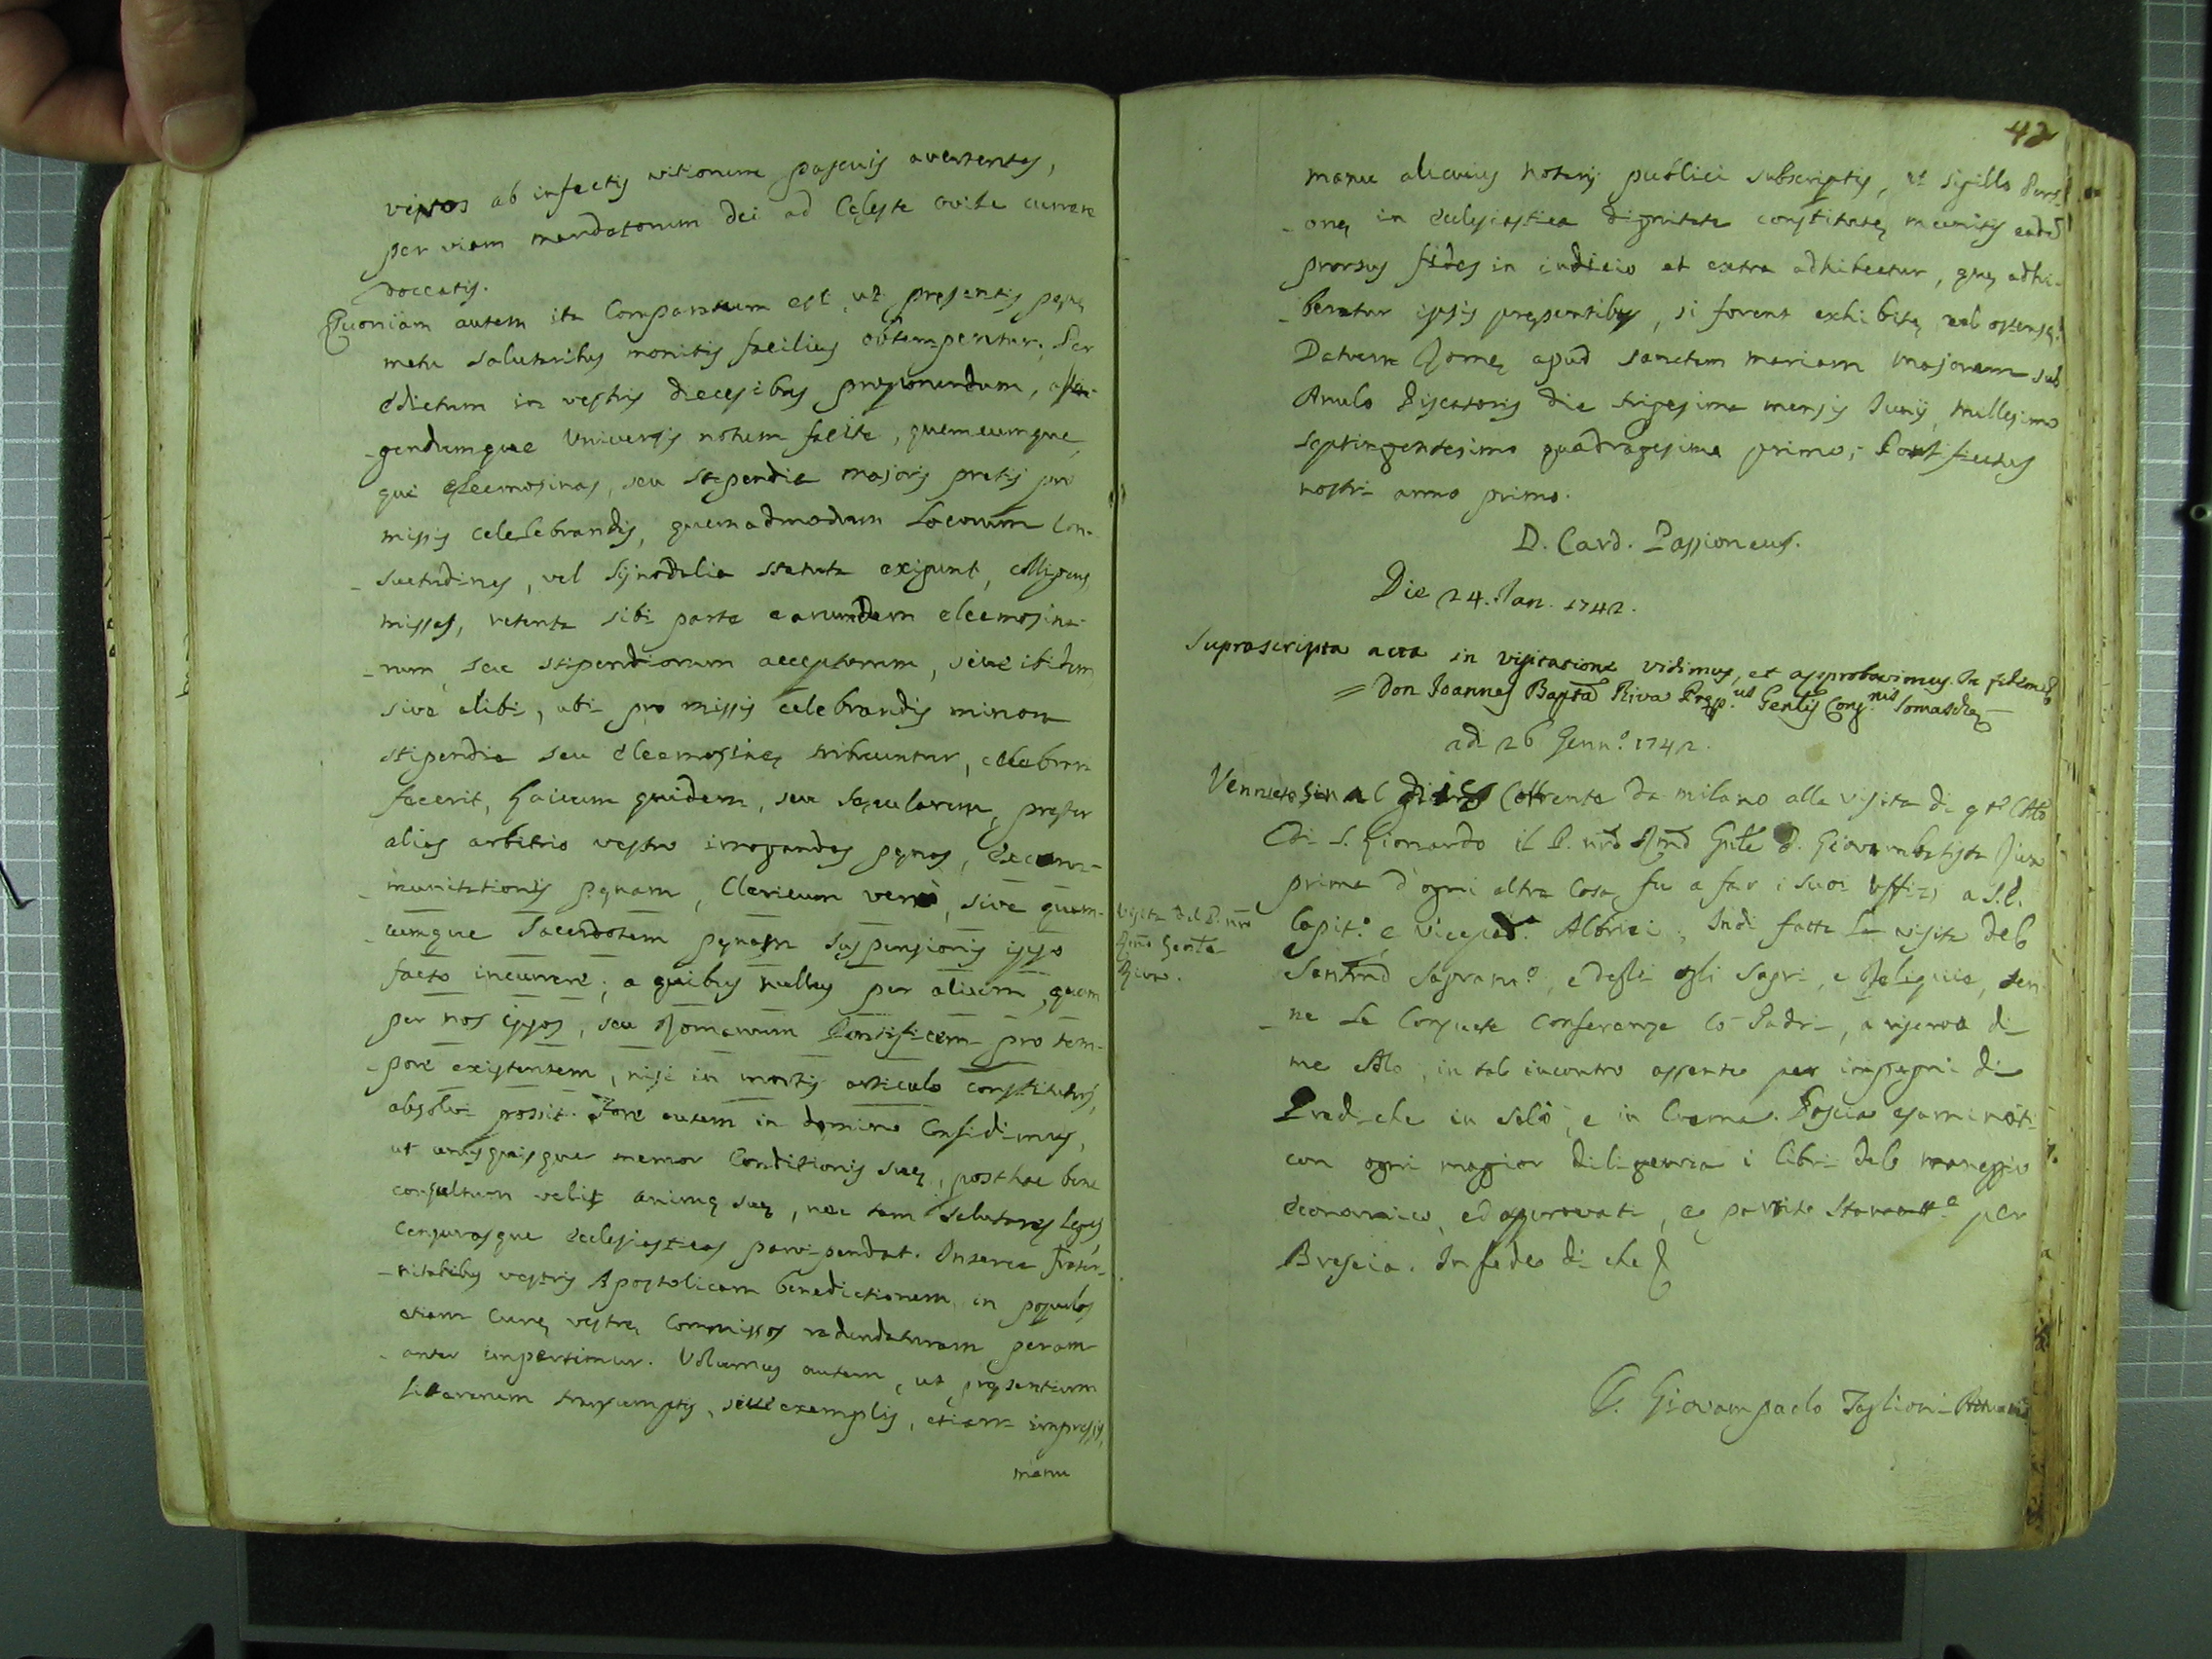 vestros ab infectis vitiorum pascuis avertentes,
per viam mandatorum Dei ad Celeste ovile currere
doceatis.
Quoniam autem ita Comparatum est, ut presentis pęnę
metu salutaribus monitis facilius obtemperetur, Per
edictum in vestris diecesibus proponendum, affi-
-gendumque Universis notum facite, quemcumque,
qui eleemosinas, seu stipendia majoris pretij pro
missis celelebrandis, quemadmodum Locorum Con-
-suetudines, vel Synodalia statuta exigunt, colligens
missas, retenta sibi parte earumdem eleemosina-
-rum, seu stipendiorum acceptorum, sive ibidem
sive alibi, ubi pro missis celebrandis minora
stipendia seu eleemosinę tribuuntur, celebrari
fecerit, Laicum quidem, seu sęcularem, pręter
alias arbitrio vestro irrogandas pęnas, excom-
-municationis pęnam, Clericum verò, sive quem-
-cumque Sacerdotem pęnam suspensionis ipso
facto incurrere; a quibus nullus per alium, quam
per nos ipsos, seu Romanum Pontificem pro tem-
-pore existentem, nisi in mortis articulo constitutus,
absolvi possit. Fore autem in domino Confidimus,
ut unusquisque memor Conditionis suę, posthac bene
consultum velit animę suę, nec tam salutares leges,
censurasque ecclesiasticas parvipendat. Interea frater-
-nitatibus vestris Apostolicam benedictionem, in populos
etiam Curę vestrę Commissos redundaturam peram-
-anter impertimur. Volumus autem, ut pręsentium
literarum transumptis, seu exemplis, etiam impressis,
manu
42
manu alicuius notarij publici subscriptis, et sigillo Pers-
-onę in ecclesiastica dignitate constitutę munitis eadē
prorsus fides in iudicio et extra adhibeatur, quę adhi-
-beretur ipsis pręsentibus, si forent exhibitę, vel ostensę.
Datum Romę apud Sanctam Mariam Majorem sub
Anulo Piscatoris die trigesima mensis Junij millesimo
septingentesimo quadragesimo primo, Pontificatus
nostri anno primo.
D. Card. Passioneus.
Die 24. Jan. 1742.
Suprascripta acta in visitatione vidimus, et approbavimus. In fidem &
= Don Joannes Bapta Riva Pręp.us Gen̄lis Cong.nis Somaschę
adi 26 Genn.o 1742.
Venneto sin al Corrente da Milano alla visita di q.to Coll.o
di S. Lionardo il P. nrō Rmō Gn̄le D. Giovambatista Riva
prima d'ogni altra Cosa fu a far i suoi uffizi a S. E.
Capit.o e Vicepod.a Albrici; Indi fatta la visita del
Santmō Sagram.o, e degli ogli Sagri, e Reliquie, ten-
-ne Le Consuete Conferenze Co' Padri, a riserva di
me Atto, in tal incontro assente per impegni di
Prediche in Salò, e in Poscia esaminati
con ogni maggior diligenza i libri del maneggio
economico, ed approvati, è partito per
Brescia. In fede di che &
Visita del P. nrō
Rmō Gen̄le
Riva.
D. Giovampaolo Taglioni Attuario